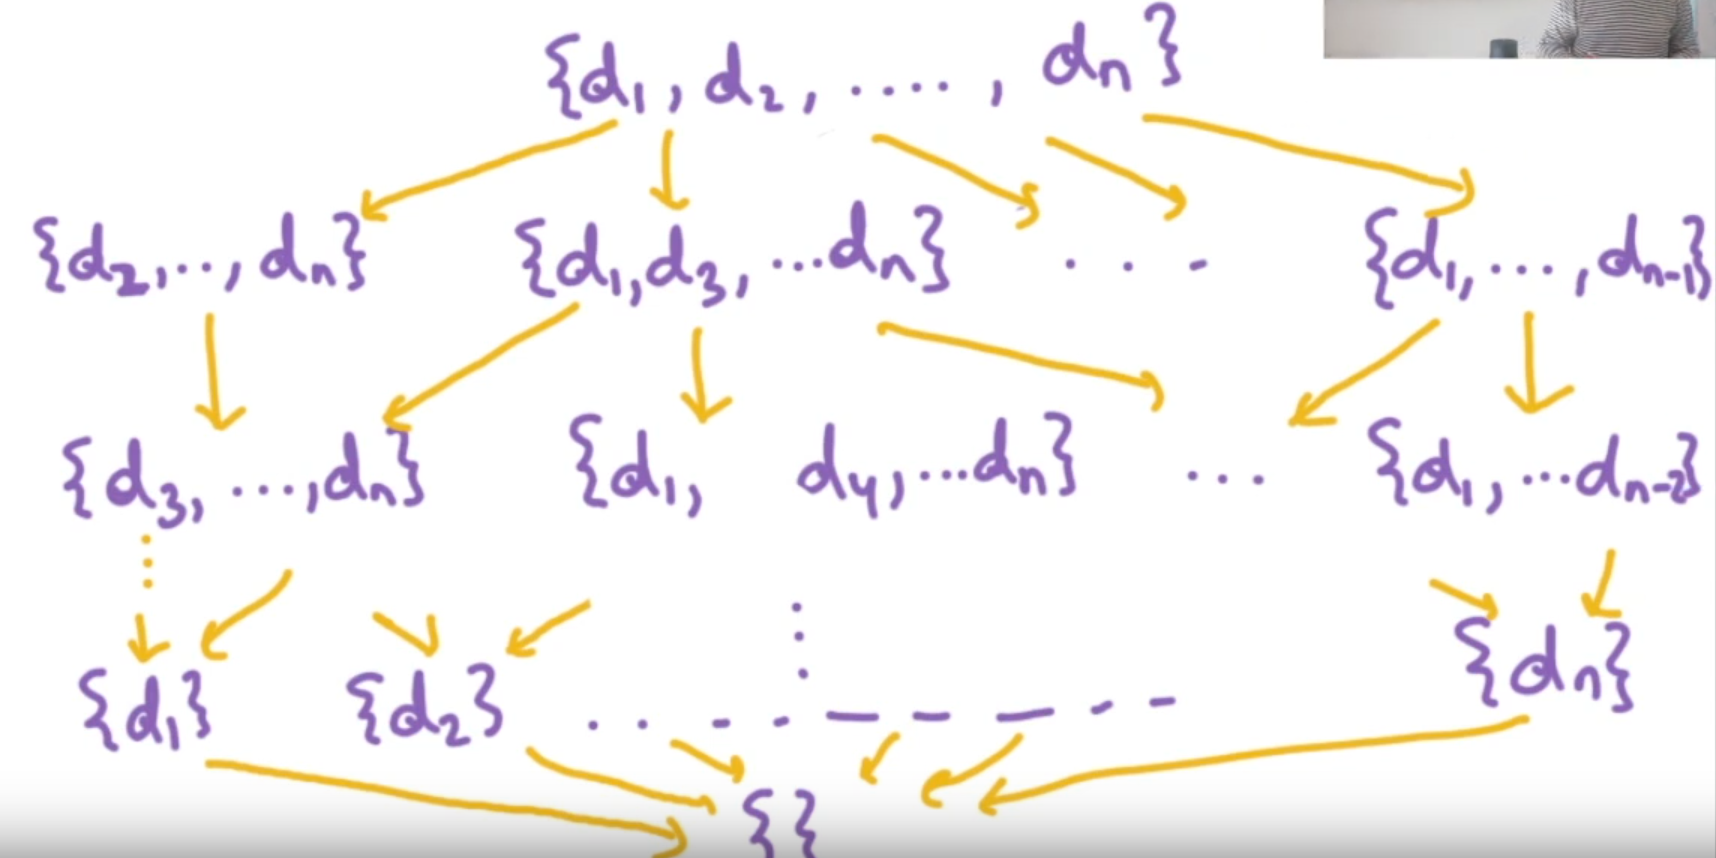 {d₁, d₂, ...., dₙ}
{d₂,.., dₙ} {d₁, d₃, ...dₙ} . . . {d₁, ..., dₙ₋₁}
{d₃, ...,dₙ} {d₁, d₄, ...dₙ} ... {d₁, ...dₙ₋₂}
{d₁} {d₂} {dₙ}
{}